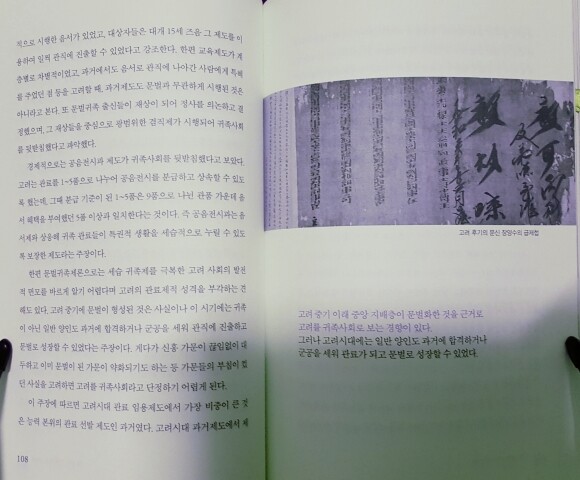 적으로 시행한 음서가 있었고, 대상자들은 대개 15세 즈음 그 제도를 이
용하여 일찍 관직에 진출할 수 있었다고 강조한다. 한편 교육제도가 계
층별로 차별적이었고, 과거에서도 음서로 관직에 나아간 사람에게 특혜
를 주었던 점 등을 고려할 때, 과거제도도 문벌과 무관하게 시행된 것은
아니라고 본다. 또 문벌귀족 출신들이 재상이 되어 정사를 의논하고 결
정했으며, 그 재상들을 중심으로 광범위한 겸직제가 시행되어 귀족사회
를 뒷받침했다고 파악했다.
경제적으로는 공음전시과 제도가 귀족사회를 뒷받침했다고 보았다.
고려는 관료를 1~5품으로 나누어 공음전시를 분급하고 상속할 수 있도
록 했는데, 그때 분급 기준이 된 1~5품은 9품으로 나뉜 관품 가운데 음
서 혜택을 부여했던 5품 이상과 일치한다는 것이다. 즉 공음전시과는 음
서제와 상응해 귀족 관료들이 특권적 생활을 세습적으로 누릴 수 있도
록 보장한 제도라는 주장이다.
한편 문벌귀족제론으로는 세습 귀족제를 극복한 고려 사회의 발전
적 면모를 바르게 알기 어렵다며 고려의 관료제적 성격을 부각하는 견
해도 있다. 고려 중기에 문벌이 형성된 것은 사실이나 이 시기에는 귀족
이 아닌 일반 양인도 과거에 합격하거나 군공을 세워 관직에 진출하고
문벌로 성장할 수 있었다는 주장이다. 게다가 신흥 가문이 끊임없이 대
두하고 이미 문벌이 된 가문이 약화되기도 하는 등 가문들의 부침이 있
던 사실을 고려하면 고려를 귀족사회라고 단정하기 어렵게 된다.
이 주장에 따르면 고려시대 관료 임용제도에서 가장 비중이 큰 것
은 능력 본위의 관료 선발 제도인 과거였다. 고려시대 과거제도에서 제
108
고려 후기의 문신 장양수의 급제첩
고려 중기 이래 중앙 지배층이 문벌화한 것을 근거로
고려를 귀족사회로 보는 경향이 있다.
그러나 고려시대에는 일반 양인도 과거에 합격하거나
군공을 세워 관료가 되고 문벌로 성장할 수 있었다.